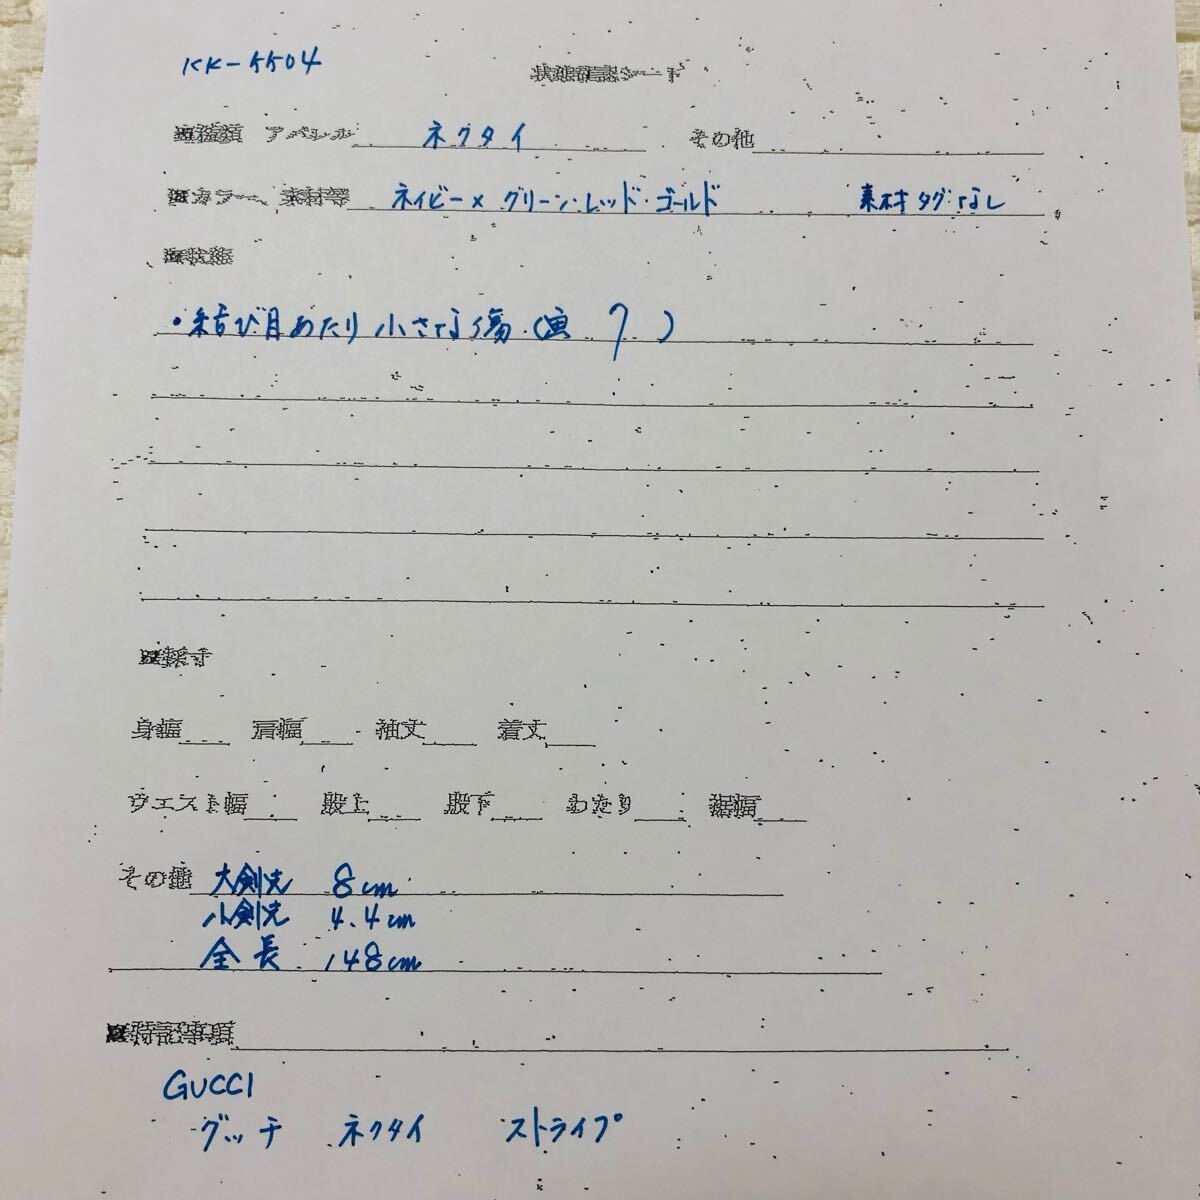 KK-5504
状態確認シート
■種類 アパレル ネクタイ その他
■カラー、素材等 ネイビー×グリーン・レッド・ゴールド 素材タグなし
■状態
・結び目あたり 小さな傷(画 7 )
■採寸
身幅 肩幅 袖丈 着丈
ウエスト幅 股上 股下 わたり 裾幅
その他 大剣先 8cm
小剣先 4.4cm
全長 148cm
■特記事項
GUCCI
グッチ ネクタイ ストライプ